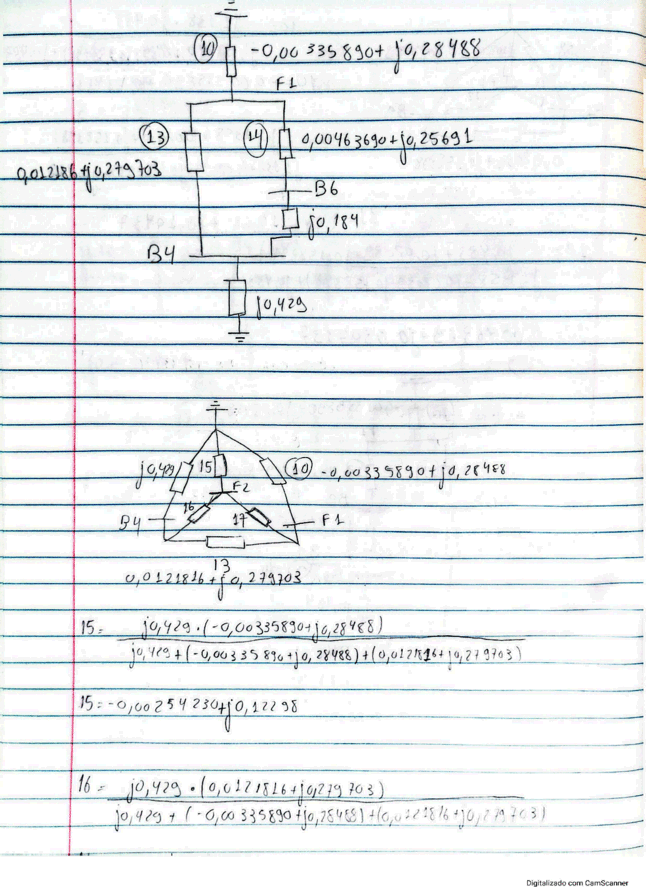 10 -0,00335890+j0,28488
F1
13 14 0,00463690+j0,25691
0,012186+j0,279703
B6
j0,184
B4
j0,429
j0,429 15 10 -0,00335890+j0,28488
F2
16 17
B4 F1
13
0,0121816+j0,279703
15= j0,429·(-0,00335890+j0,28488)
j0,429+(-0,00335890+j0,28488)+(0,0121816+j0,279703)
15=-0,00254230+j0,12298
16= j0,429·(0,0121816+j0,279703)
j0,429+(-0,00335890+j0,28488)+(0,0121816+j0,279703)
Digitalizado com CamScanner